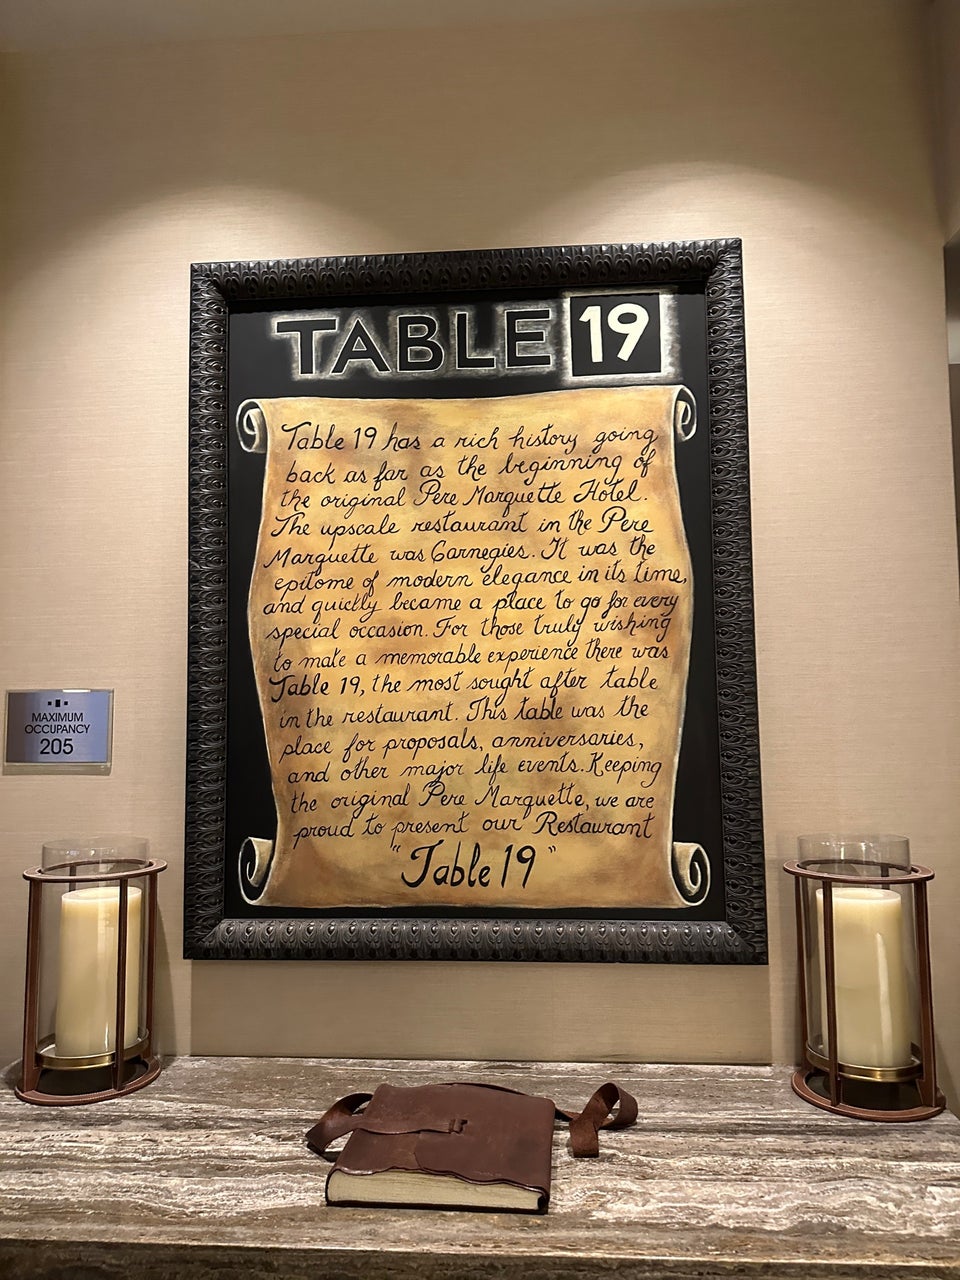 TABLE 19
Table 19 has a rich history going
back as far as the beginning of
the original Pere Marquette Hotel.
The upscale restaurant in the Pere
Marquette was Carnegies. It was the
epitome of modern elegance in its time,
and quickly became a place to go for every
special occasion. For those truly wishing
to make a memorable experience there was
Table 19, the most sought after table
in the restaurant. This table was the
place for proposals, anniversaries,
and other major life events. Keeping
the original Pere Marquette, we are
proud to present our Restaurant
"Table 19"
MAXIMUM
OCCUPANCY
205